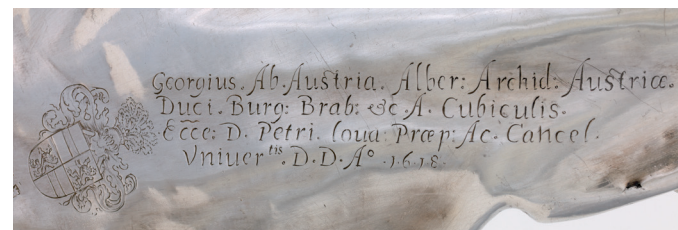 Georgius. Ab. Austria. Alber: Archid: Austriæ.
Duci. Burg: Brab: &c. A. Cubiculis.
Ecce: D. Petri. Loua: Præp: Ac. Cancel.
Vniuer^tis. D. D. A° .1618.